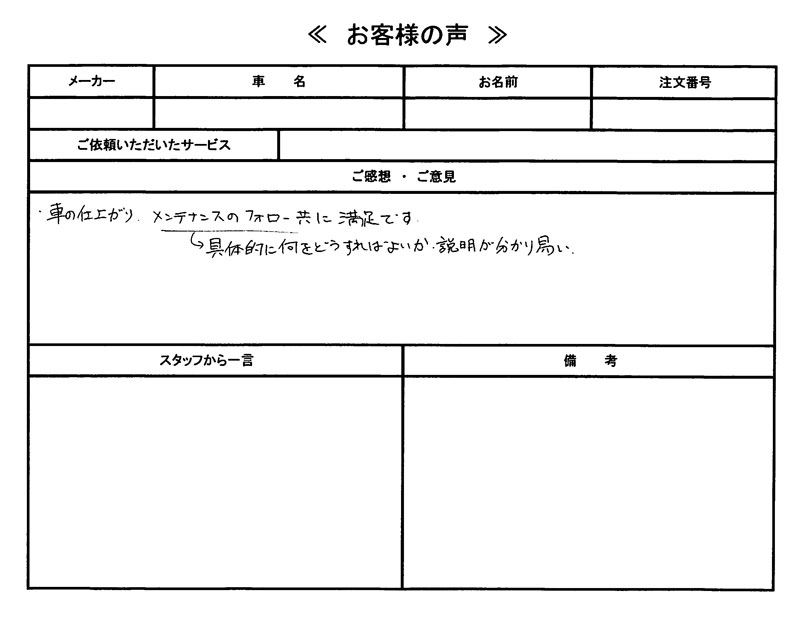 ≪ お客様の声 ≫
メーカー 車 名 お名前 注文番号
ご依頼いただいたサービス
ご感想 ・ ご意見
・車の仕上がり、メンテナンスのフォロー共に満足です。
↳具体的に何をどうすればよいか、説明が分かり易い。
スタッフから一言 備 考